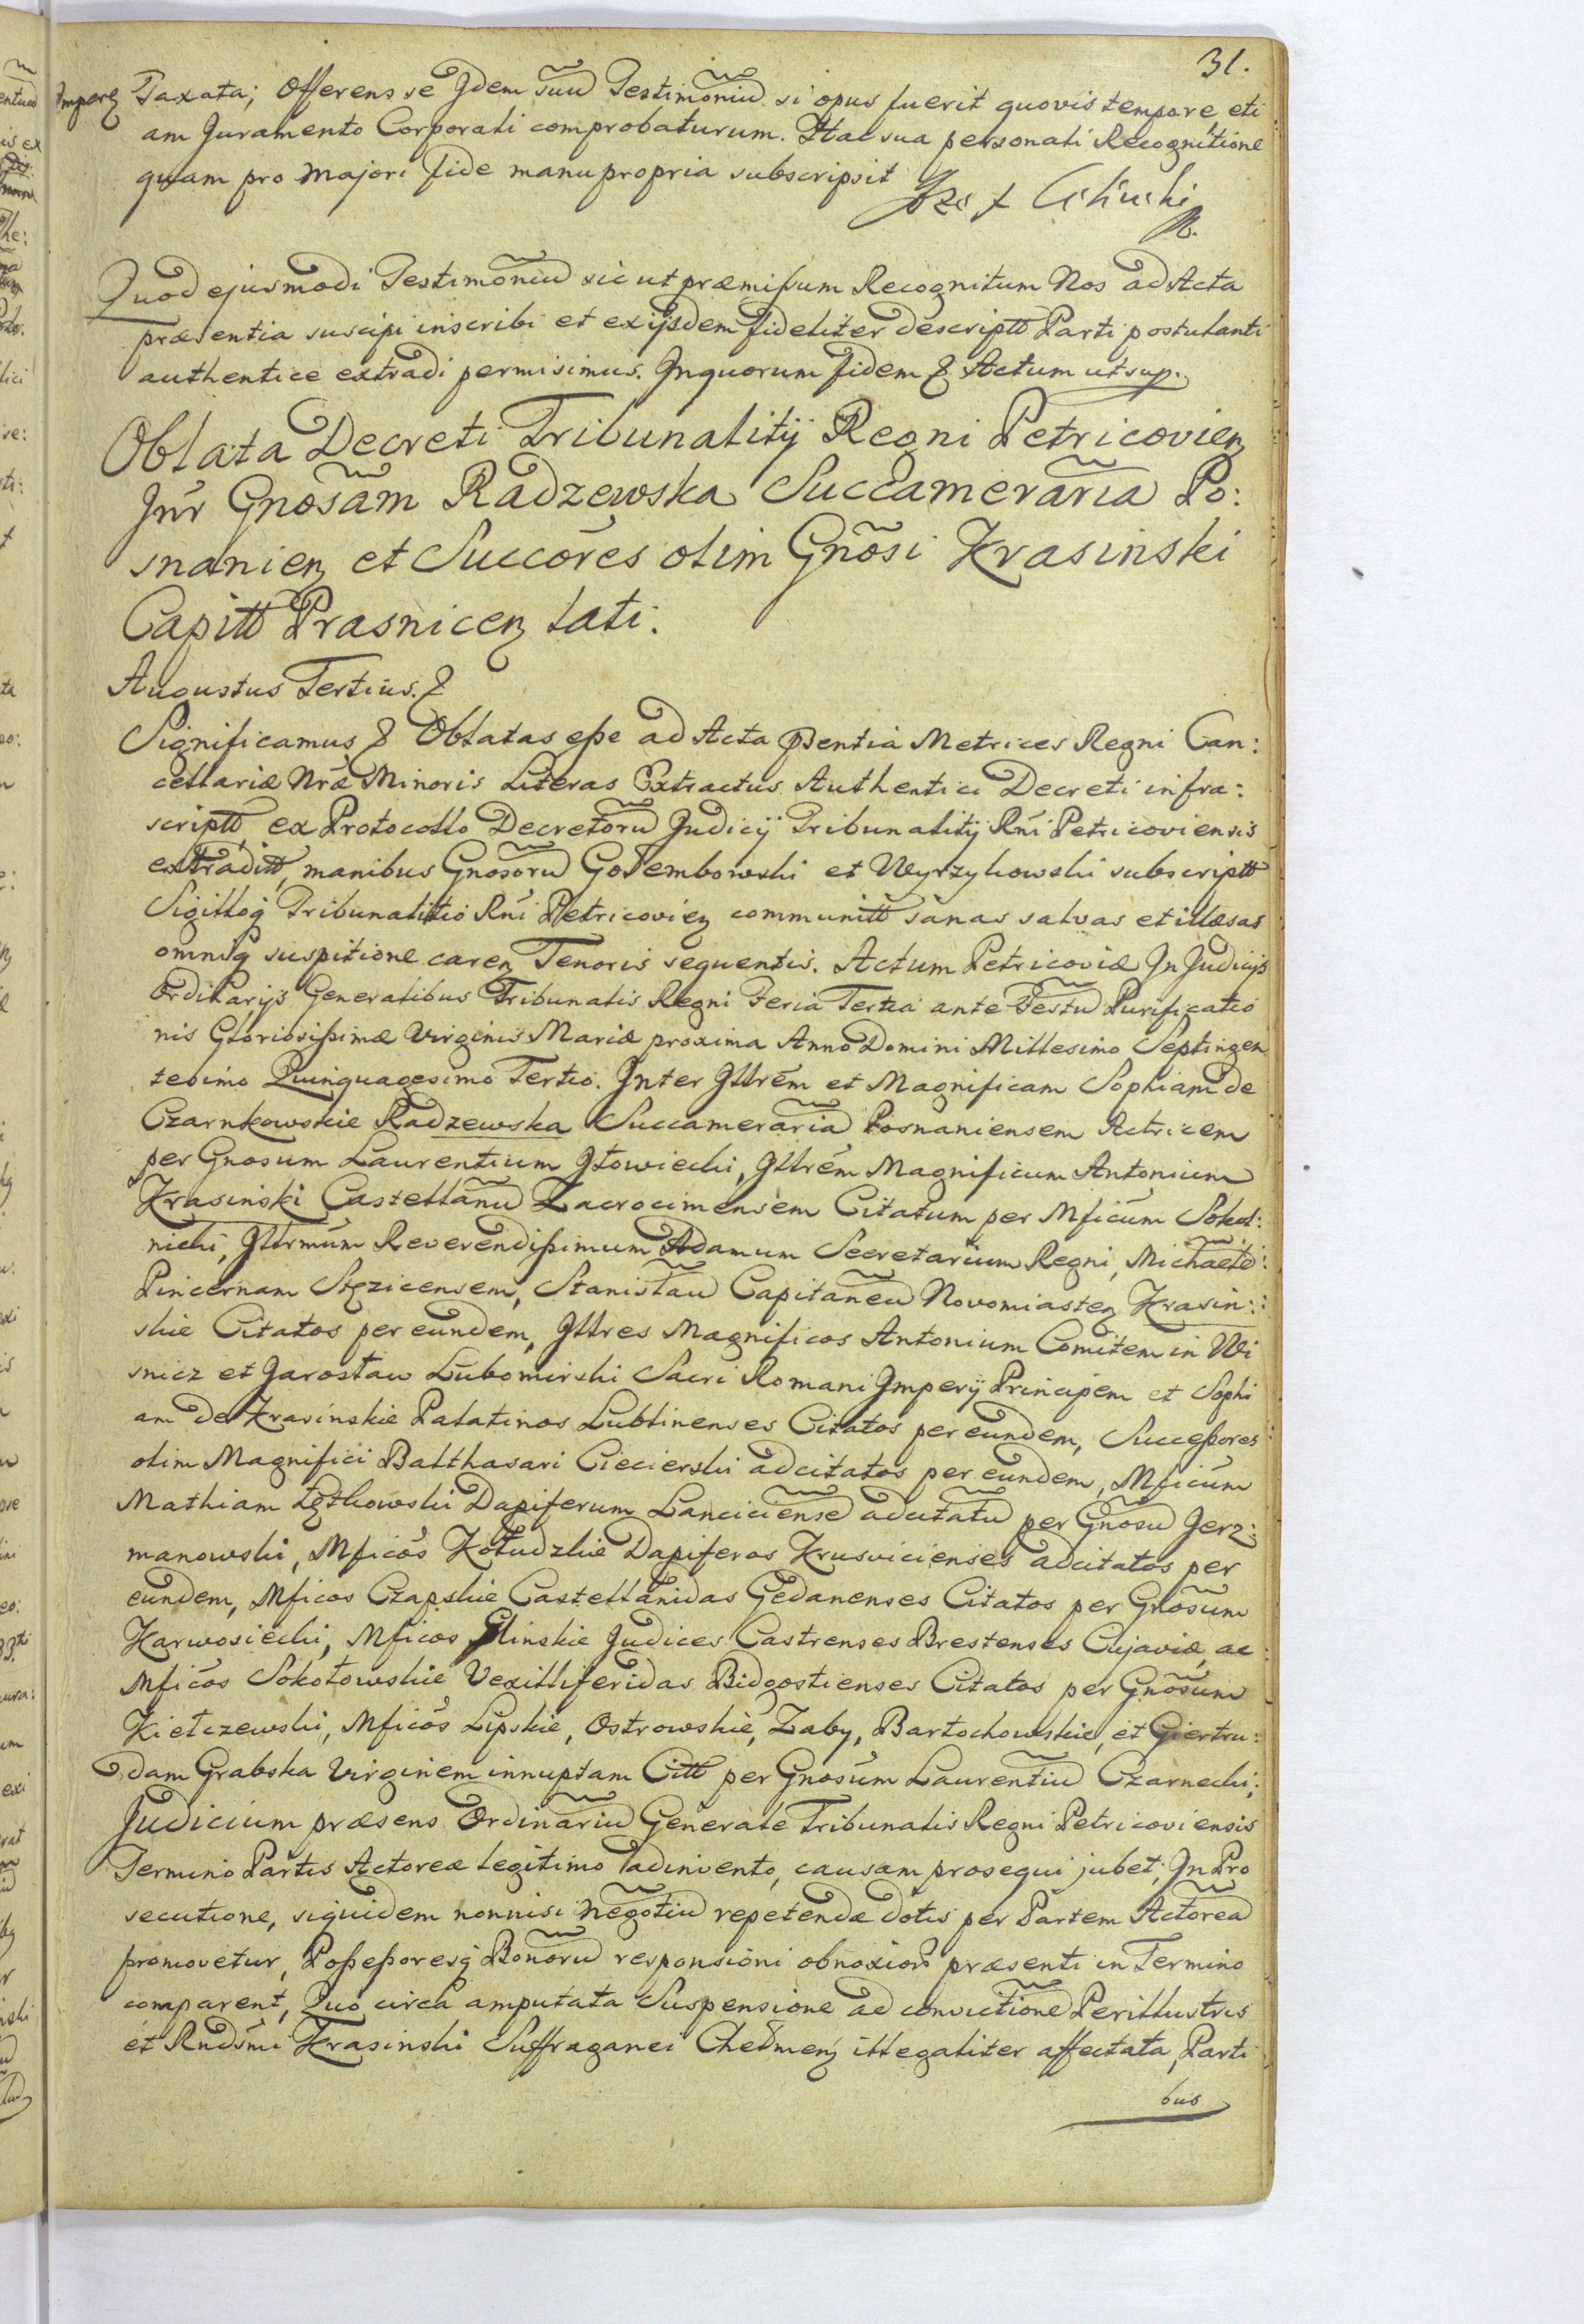 31.
Taxata; Offerens se Jdem suũ Testimoniũ si opus fuerit quovis tempore, eti
am Juramento Corporali comprobaturum. Hac sua personali Recognitione
quam pro majori fide manu propria subscripsit
Quod ejusmodi Testimoniũ sic ut præmißum Recognitum Nos ad Acta
præsentia suscipi inscribi et ex ijsdem fideliter descriptt Parti postulanti
authentice extradi permisimus. In quorum fidem & Actum ut sup.
Oblata Decreti Tribunalitij Regni Petricovien
Jnr Gnosam Radzewska Succamerariã Po:
snanien et Succores olim Gnosi Krasinski
Capitt Prasnicen lati.
Augustus Tertius. &
Significamus & Oblatas eße ad Acta pñtia Metrices Regni Can:
cellariæ Nræ Minoris Literas Extractus Authentici Decreti infra:
scriptt ex Protocollo Decretorũ Judicij Tribunalitij Rni Petricoviensis
extraditt, manibus Gnosorũ Gołembowski et Wyrzykowski subscriptt
Sigilloq Tribunalitio Rni Petricovien communitt sanas salvas et illæsas
omniq suspitione caren Tenoris sequentis. Actum Petricoviæ Jn Judicijs
Ordinarijs Generalibus Tribunalis Regni Feria Tertia ante Festũ Purificatio
nis Gloriosißimæ Virginis Mariæ proxima Anno Domini Millesimo Septingen
tesimo Quinquagesimo Tertio. Jnter Jllrem et Magnificam Sophiam de
Czarnkowskie Radzewska Succamerariã Posnaniensem Actricem
per Gnosum Laurentium Głowiecki, Jllrem Magnificum Antonium
Krasinski Castellanũ Zacrocimensem Citatum per Mficum Sokol:
nicki, Jllrmum Reverendißimum Adamum Secretarium Regni, Michaelẽ
Pincernam Stęzicensem, Stanisłaũ Capitaneũ Novomiasten Krasin:
skie Citatos per eundem, Jllres Magnificos Antonium Comitem in Wi
snicz et Jarosław Lubomirski Sacri Romani Jmperij Principem et Sophi
am de Krasinskie Palatinos Lublinenses Citatos per eundem, Succeßores
olim Magnifici Balthasari Ciecierski adcitatos per eundem, Mficum
Mathiam Łętkowski Dapiferum Lanciciensẽ adcitatũ per Gnosũ Jerz:
manowski, Mficos Kołudzkie Dapiferos Krusvicienses adcitatos per
eundem, Mficos Czapskie Castellanidas Gedanenses Citatos per Gnosum
Karwosiecki, Mficos Glinskie Judices Castrenses Brestenses Cujaviæ, ac
Mficos Sokołowskie Vexilliferidas Bidgostienses Citatos per Gnosum
Kiełczewski, Mficos Lipskie, Ostrowskie, Zaby, Bartochowskie, et Giertru:
dam Grabska Virginem innuptam Citt per Gnosum Laurentiũ Czarnecki;
Judicium præsens Ordinariũ Generale Tribunalis Regni Petricoviensis
Termino Partis Actoreæ legitimo adinvento, causam prosequi jubet; Jn Pro
secutione, siquidem nonnisi negotiũ repetendæ dotis per Partem Actoreã
promovetur, Poßeßoresq Bonorũ responsioni obnoxior præsenti in Termino
comparent, Quo circa amputata Suspensione ad convictionẽ Perillustris
et Rndsmi Krasinski Suffraganei Chełmen illegaliter affectata, Parti
bus